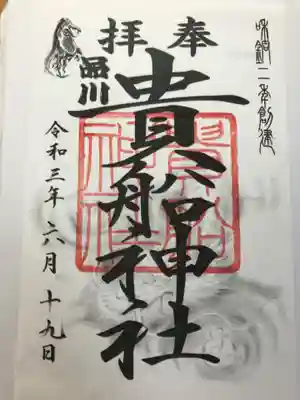 奉拝
和銅二年創建
品川
貴船神社
令和三年六月十九日